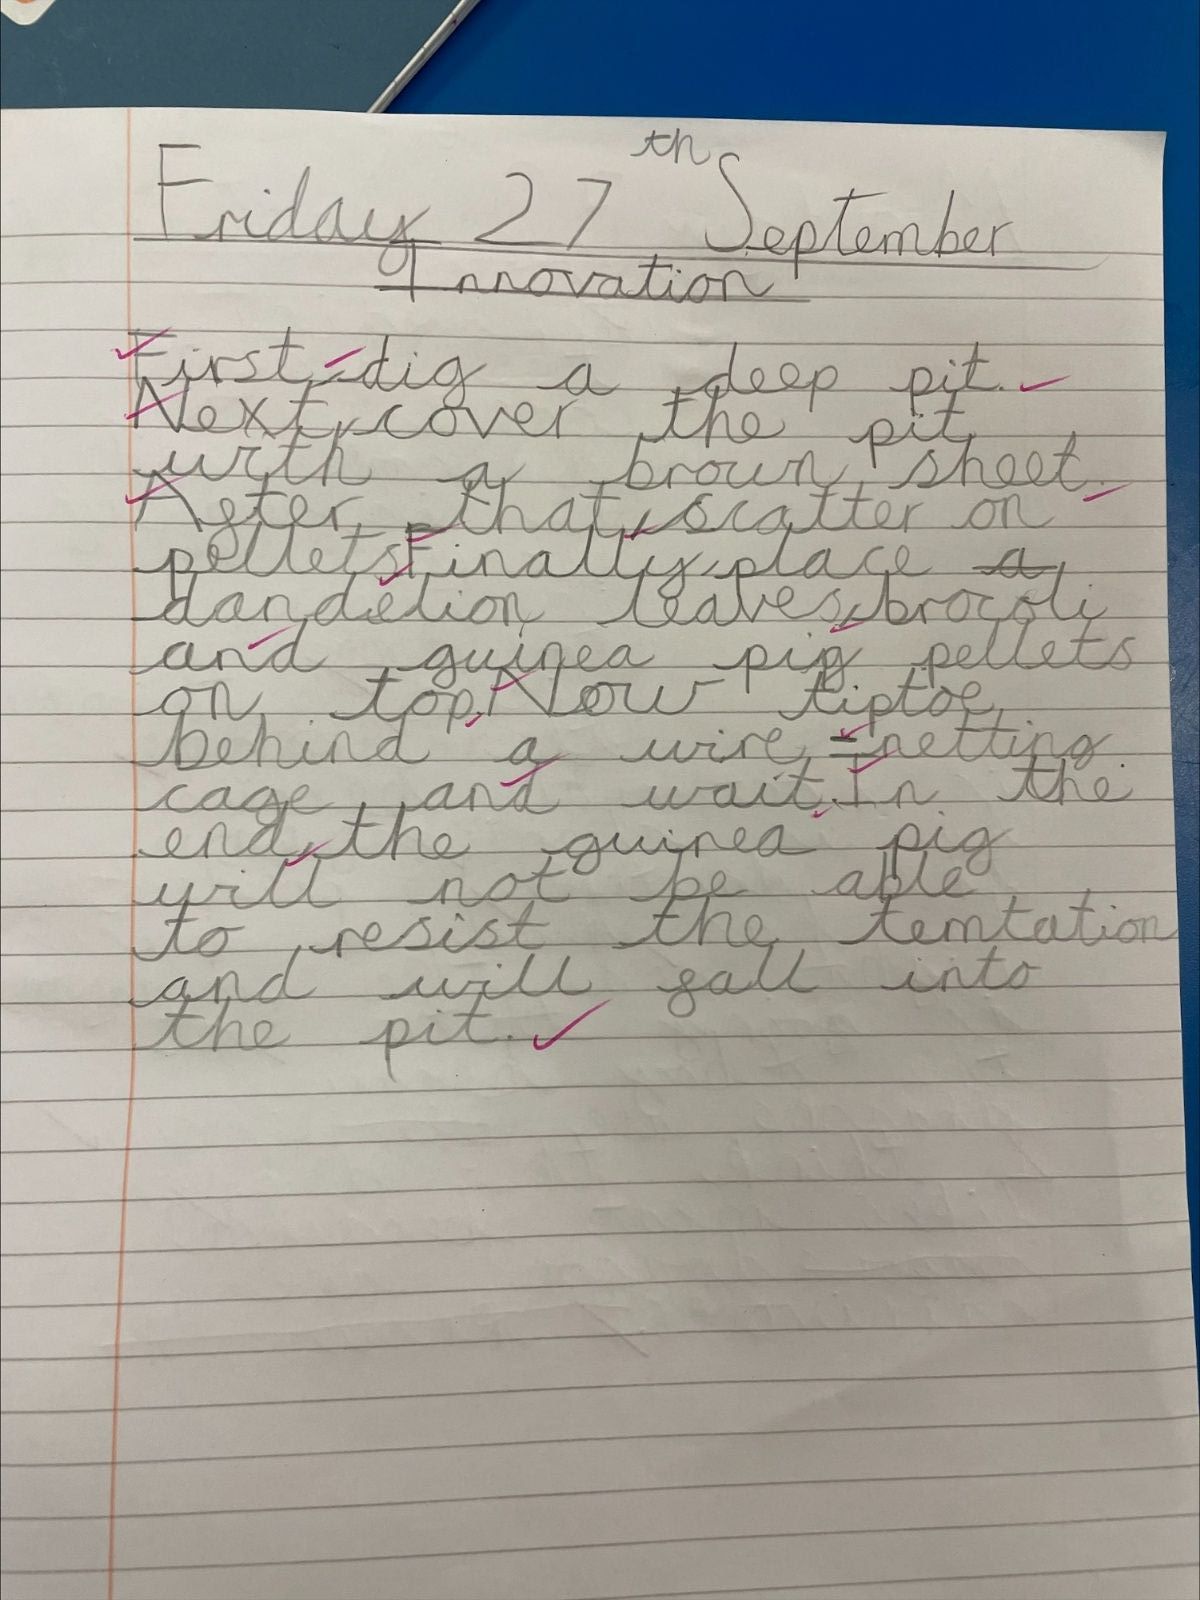 Friday 27th September
Innovation
First, dig a deep pit.
Next, cover the pit
with a brown sheet.
After that, scatter on
pellets. Finally, place a
dandelion leaves, brocoli
and guinea pig pellets
on top. Now tiptoe
behind a wire-netting
cage and wait. In the
end, the guinea pig
will not be able
to resist the temtation
and will fall into
the pit.